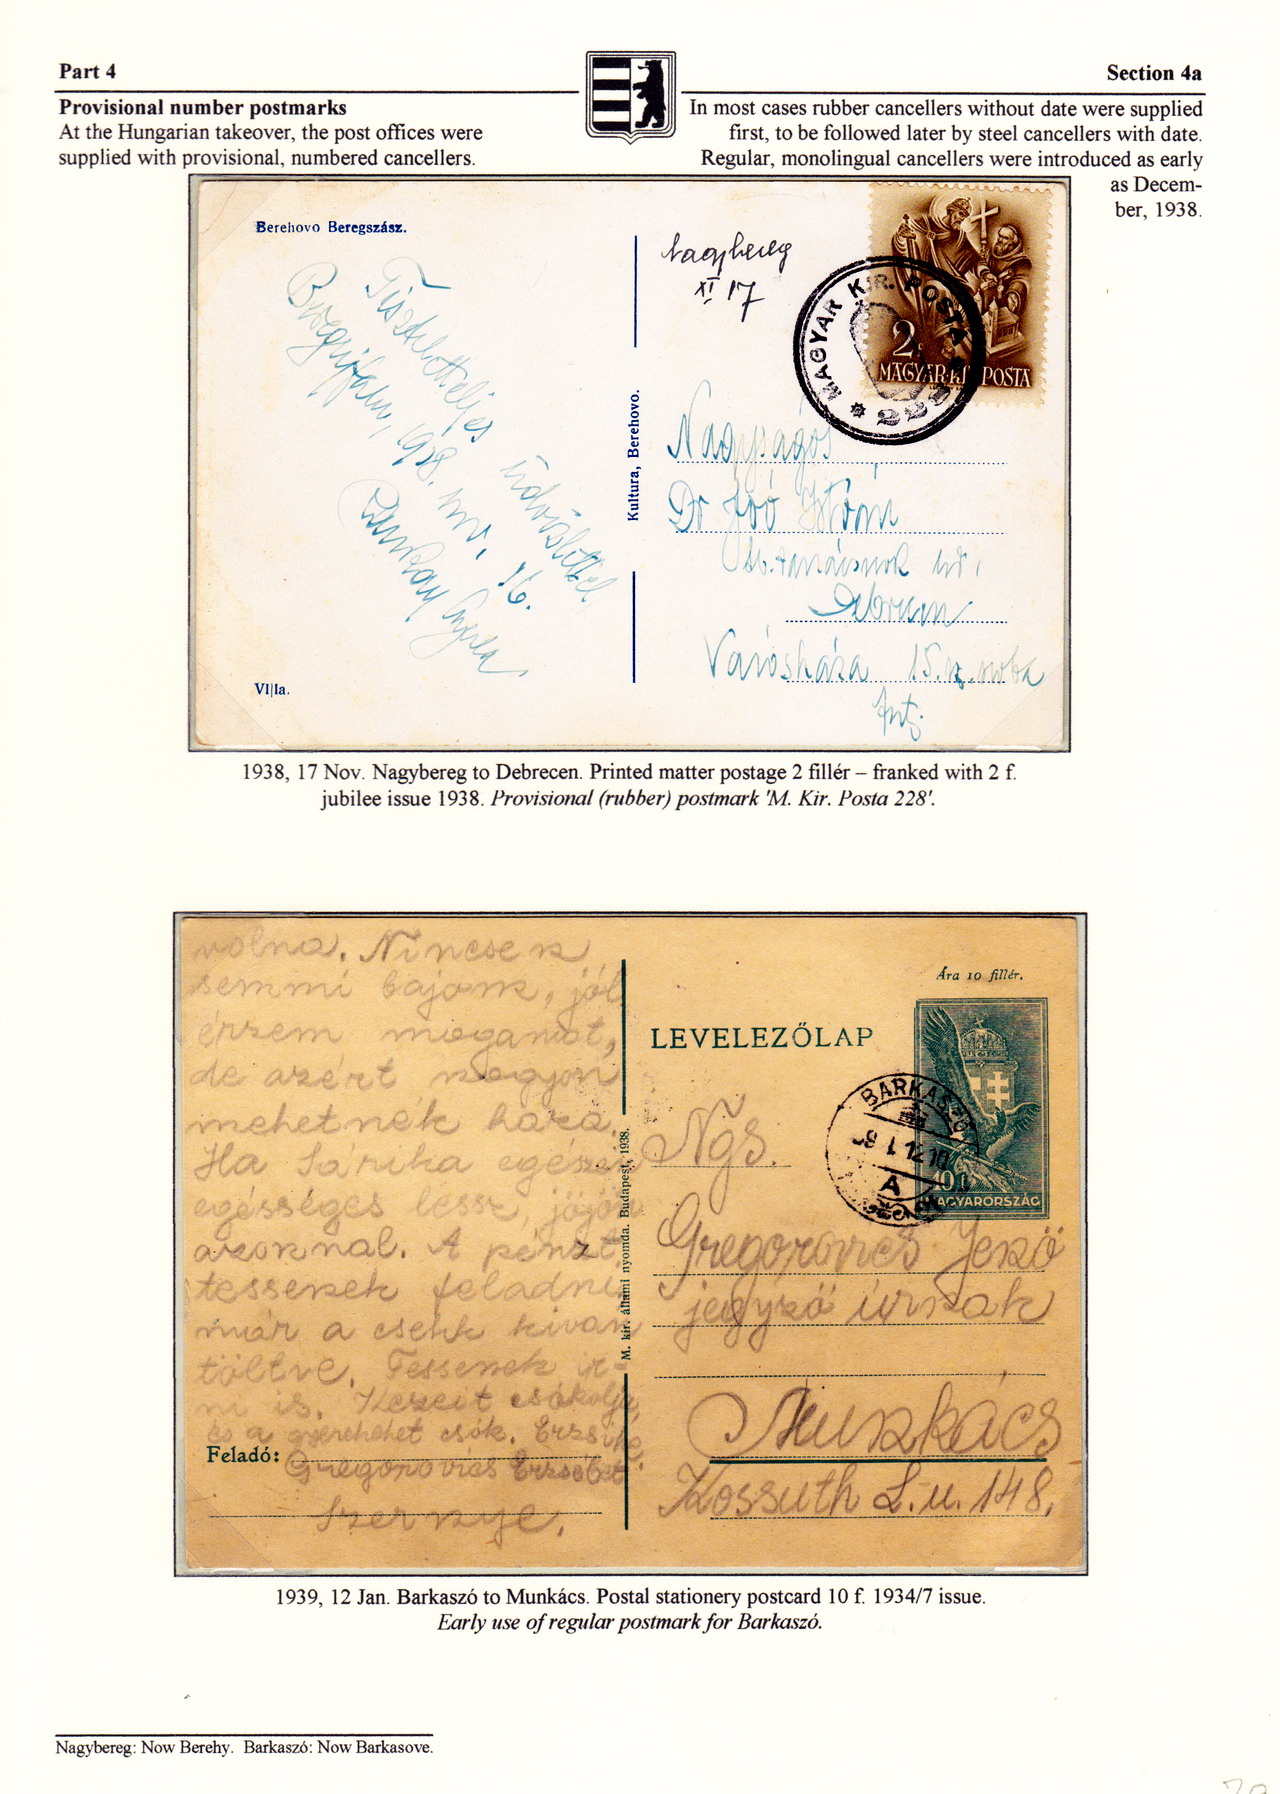 Part 4
Section 4a
Provisional number postmarks
At the Hungarian takeover, the post offices were
supplied with provisional, numbered cancellers.
In most cases rubber cancellers without date were supplied
first, to be followed later by steel cancellers with date.
Regular, monolingual cancellers were introduced as early
as Decem-
ber, 1938.
Berehovo Beregszász.
Tiszteletteljes üdvözlettel
1938. 16.
Vl|la.
Kultura, Berehovo.
Nagybereg
XI 17
MAGYAR KIR. POSTA
* 228
2f
MAGYAR·KIR·POSTA
Nagyságos
Dr Joó István
Debrecen
Városháza 15.
1938, 17 Nov. Nagybereg to Debrecen. Printed matter postage 2 fillér – franked with 2 f.
jubilee issue 1938. Provisional (rubber) postmark 'M. Kir. Posta 228'.
volna. Nincsen
semmi bajom, jól
érzem magamat,
de azért nagyon
mehetnék haza.
Ha Sárika
egésséges lessz, jöjön
azonnal. A pénzt
tessenek feladni
már a csekk kivan
töltve. Tessenek ir-
ni is. Kezeit csókolja
és a gyerekeket csók. Erzsike.
Feladó: Gregorovics Erzsébet
Szernye.
M. kir. állami nyomda. Budapest, 1938.
Ára 10 fillér.
LEVELEZŐLAP
BARKASZÓ
A
10f
MAGYARORSZÁG
Ngs.
Gregorovics Jenő
jegyző úrnak
Munkács
Kossuth L. u. 148.
1939, 12 Jan. Barkaszó to Munkács. Postal stationery postcard 10 f. 1934/7 issue.
Early use of regular postmark for Barkaszó.
Nagybereg: Now Berehy. Barkaszó: Now Barkasove.